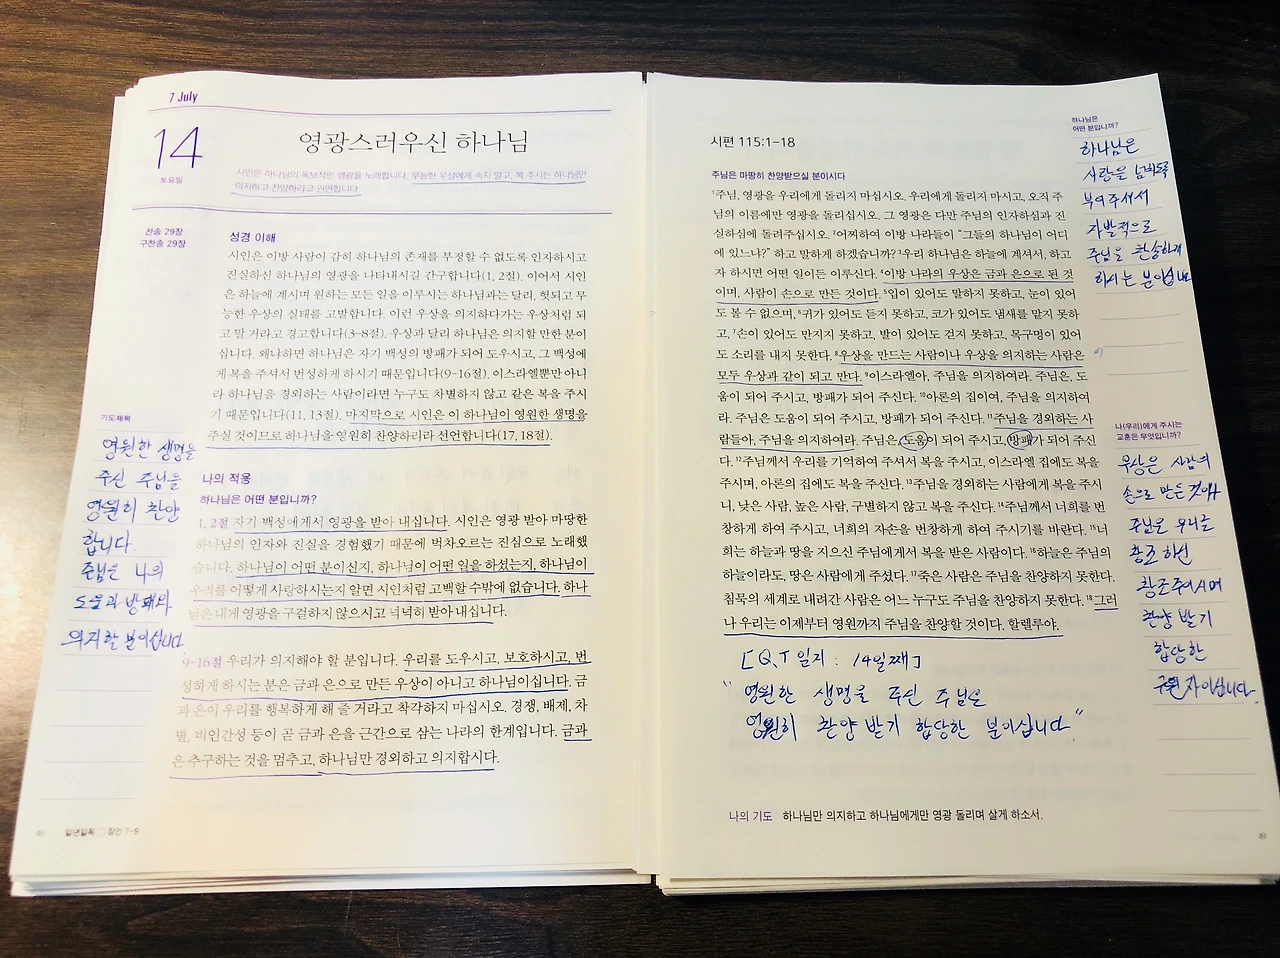 7 July
14
토요일
영광스러우신 하나님
시인은 하나님의 독보적인 영광을 노래합니다. 무능한 우상에게 속지 말고, 복 주시는 하나님만
의지하고 찬양하라고 권면합니다.
찬송 29장
구찬송 29장
성경 이해
시인은 이방 사람이 감히 하나님의 존재를 부정할 수 없도록 인자하시고
진실하신 하나님의 영광을 나타내시길 간구합니다(1, 2절). 이어서 시인
은 하늘에 계시며 원하는 모든 일을 이루시는 하나님과는 달리, 헛되고 무
능한 우상의 실태를 고발합니다. 이런 우상을 의지하다가는 우상처럼 되
고 말 거라고 경고합니다(3-8절). 우상과 달리 하나님은 의지할 만한 분이
십니다. 왜냐하면 하나님은 자기 백성의 방패가 되어 도우시고, 그 백성에
게 복을 주셔서 번성하게 하시기 때문입니다(9-16절). 이스라엘뿐만 아니
라 하나님을 경외하는 사람이라면 누구도 차별하지 않고 같은 복을 주시
기 때문입니다(11, 13절). 마지막으로 시인은 이 하나님이 영원한 생명을
주실 것이므로 하나님을 영원히 찬양하리라 선언합니다(17, 18절).
기도제목
영원한 생명을
주신 주님을
영원히 찬양
합니다.
주님은 나의
도움과 방패와
의지할 분이십니다.
나의 적용
하나님은 어떤 분입니까?
1, 2절 자기 백성에게서 영광을 받아 내십니다. 시인은 영광 받아 마땅한
하나님의 인자와 진실을 경험했기 때문에 벅차오르는 진심으로 노래했
습니다. 하나님이 어떤 분이신지, 하나님이 어떤 일을 하셨는지, 하나님이
우리를 어떻게 사랑하시는지 알면 시인처럼 고백할 수밖에 없습니다. 하나
님은 내게 영광을 구걸하지 않으시고 넉넉히 받아 내십니다.
9-16절 우리가 의지해야 할 분입니다. 우리를 도우시고, 보호하시고, 번
성하게 하시는 분은 금과 은으로 만든 우상이 아니고 하나님이십니다. 금
과 은이 우리를 행복하게 해 줄 거라고 착각하지 마십시오. 경쟁, 배제, 차
별, 비인간성 등이 곧 금과 은을 근간으로 삼는 나라의 한계입니다. 금과
은 추구하는 것을 멈추고, 하나님만 경외하고 의지합시다.
일년일독 잠언 7-9
시편 115:1-18
주님은 마땅히 찬양받으실 분이시다
1주님, 영광을 우리에게 돌리지 마십시오. 우리에게 돌리지 마시고, 오직 주
님의 이름에만 영광을 돌리십시오. 그 영광은 다만 주님의 인자하심과 진
실하심에 돌려주십시오. 2어찌하여 이방 나라들이 "그들의 하나님이 어디
에 있느냐?" 하고 말하게 하겠습니까? 3우리 하나님은 하늘에 계셔서, 하고
자 하시면 어떤 일이든 이루신다. 4이방 나라의 우상은 금과 은으로 된 것
이며, 사람이 손으로 만든 것이다. 5입이 있어도 말하지 못하고, 눈이 있어
도 볼 수 없으며, 6귀가 있어도 듣지 못하고, 코가 있어도 냄새를 맡지 못하
고, 7손이 있어도 만지지 못하고, 발이 있어도 걷지 못하고, 목구멍이 있어
도 소리를 내지 못한다. 8우상을 만드는 사람이나 우상을 의지하는 사람은
모두 우상과 같이 되고 만다. 9이스라엘아, 주님을 의지하여라. 주님은, 도
움이 되어 주시고, 방패가 되어 주신다. 10아론의 집이여, 주님을 의지하여
라. 주님은 도움이 되어 주시고, 방패가 되어 주신다. 11주님을 경외하는 사
람들아, 주님을 의지하여라. 주님은, 도움이 되어 주시고, 방패가 되어 주신
다. 12주님께서 우리를 기억하여 주셔서 복을 주시고, 이스라엘 집에도 복을
주시며, 아론의 집에도 복을 주신다. 13주님을 경외하는 사람에게 복을 주시
니, 낮은 사람, 높은 사람, 구별하지 않고 복을 주신다. 14주님께서 너희를 번
창하게 하여 주시고, 너희의 자손을 번창하게 하여 주시기를 바란다. 15너
희는 하늘과 땅을 지으신 주님에게서 복을 받은 사람이다. 16하늘은 주님의
하늘이라도, 땅은 사람에게 주셨다. 17죽은 사람은 주님을 찬양하지 못한다.
침묵의 세계로 내려간 사람은 어느 누구도 주님을 찬양하지 못한다. 18그러
나 우리는 이제부터 영원까지 주님을 찬양할 것이다. 할렐루야.
[Q.T 일지 : 14일째]
"영원한 생명을 주신 주님은
영원히 찬양 받기 합당한 분이십니다"
나의 기도 하나님만 의지하고 하나님에게만 영광 돌리며 살게 하소서.
하나님은
어떤 분입니까?
하나님은
사랑을 넘치도록
부어주셔서
자발적으로
주님을 찬송하게
하시는 분이십니다
나(우리)에게 주시는
교훈은 무엇입니까?
우상은 사람이
손으로 만든 것이나
주님은 우리를
창조하신
창조주이시며
찬양 받기
합당한
구원자이십니다.